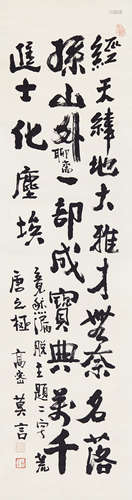 經天緯地大雅才無奈名落
孫山外聊齋一部成寶典萬千
進士化塵埃
竟然漏脫主題二字荒
唐之極 高密莫言